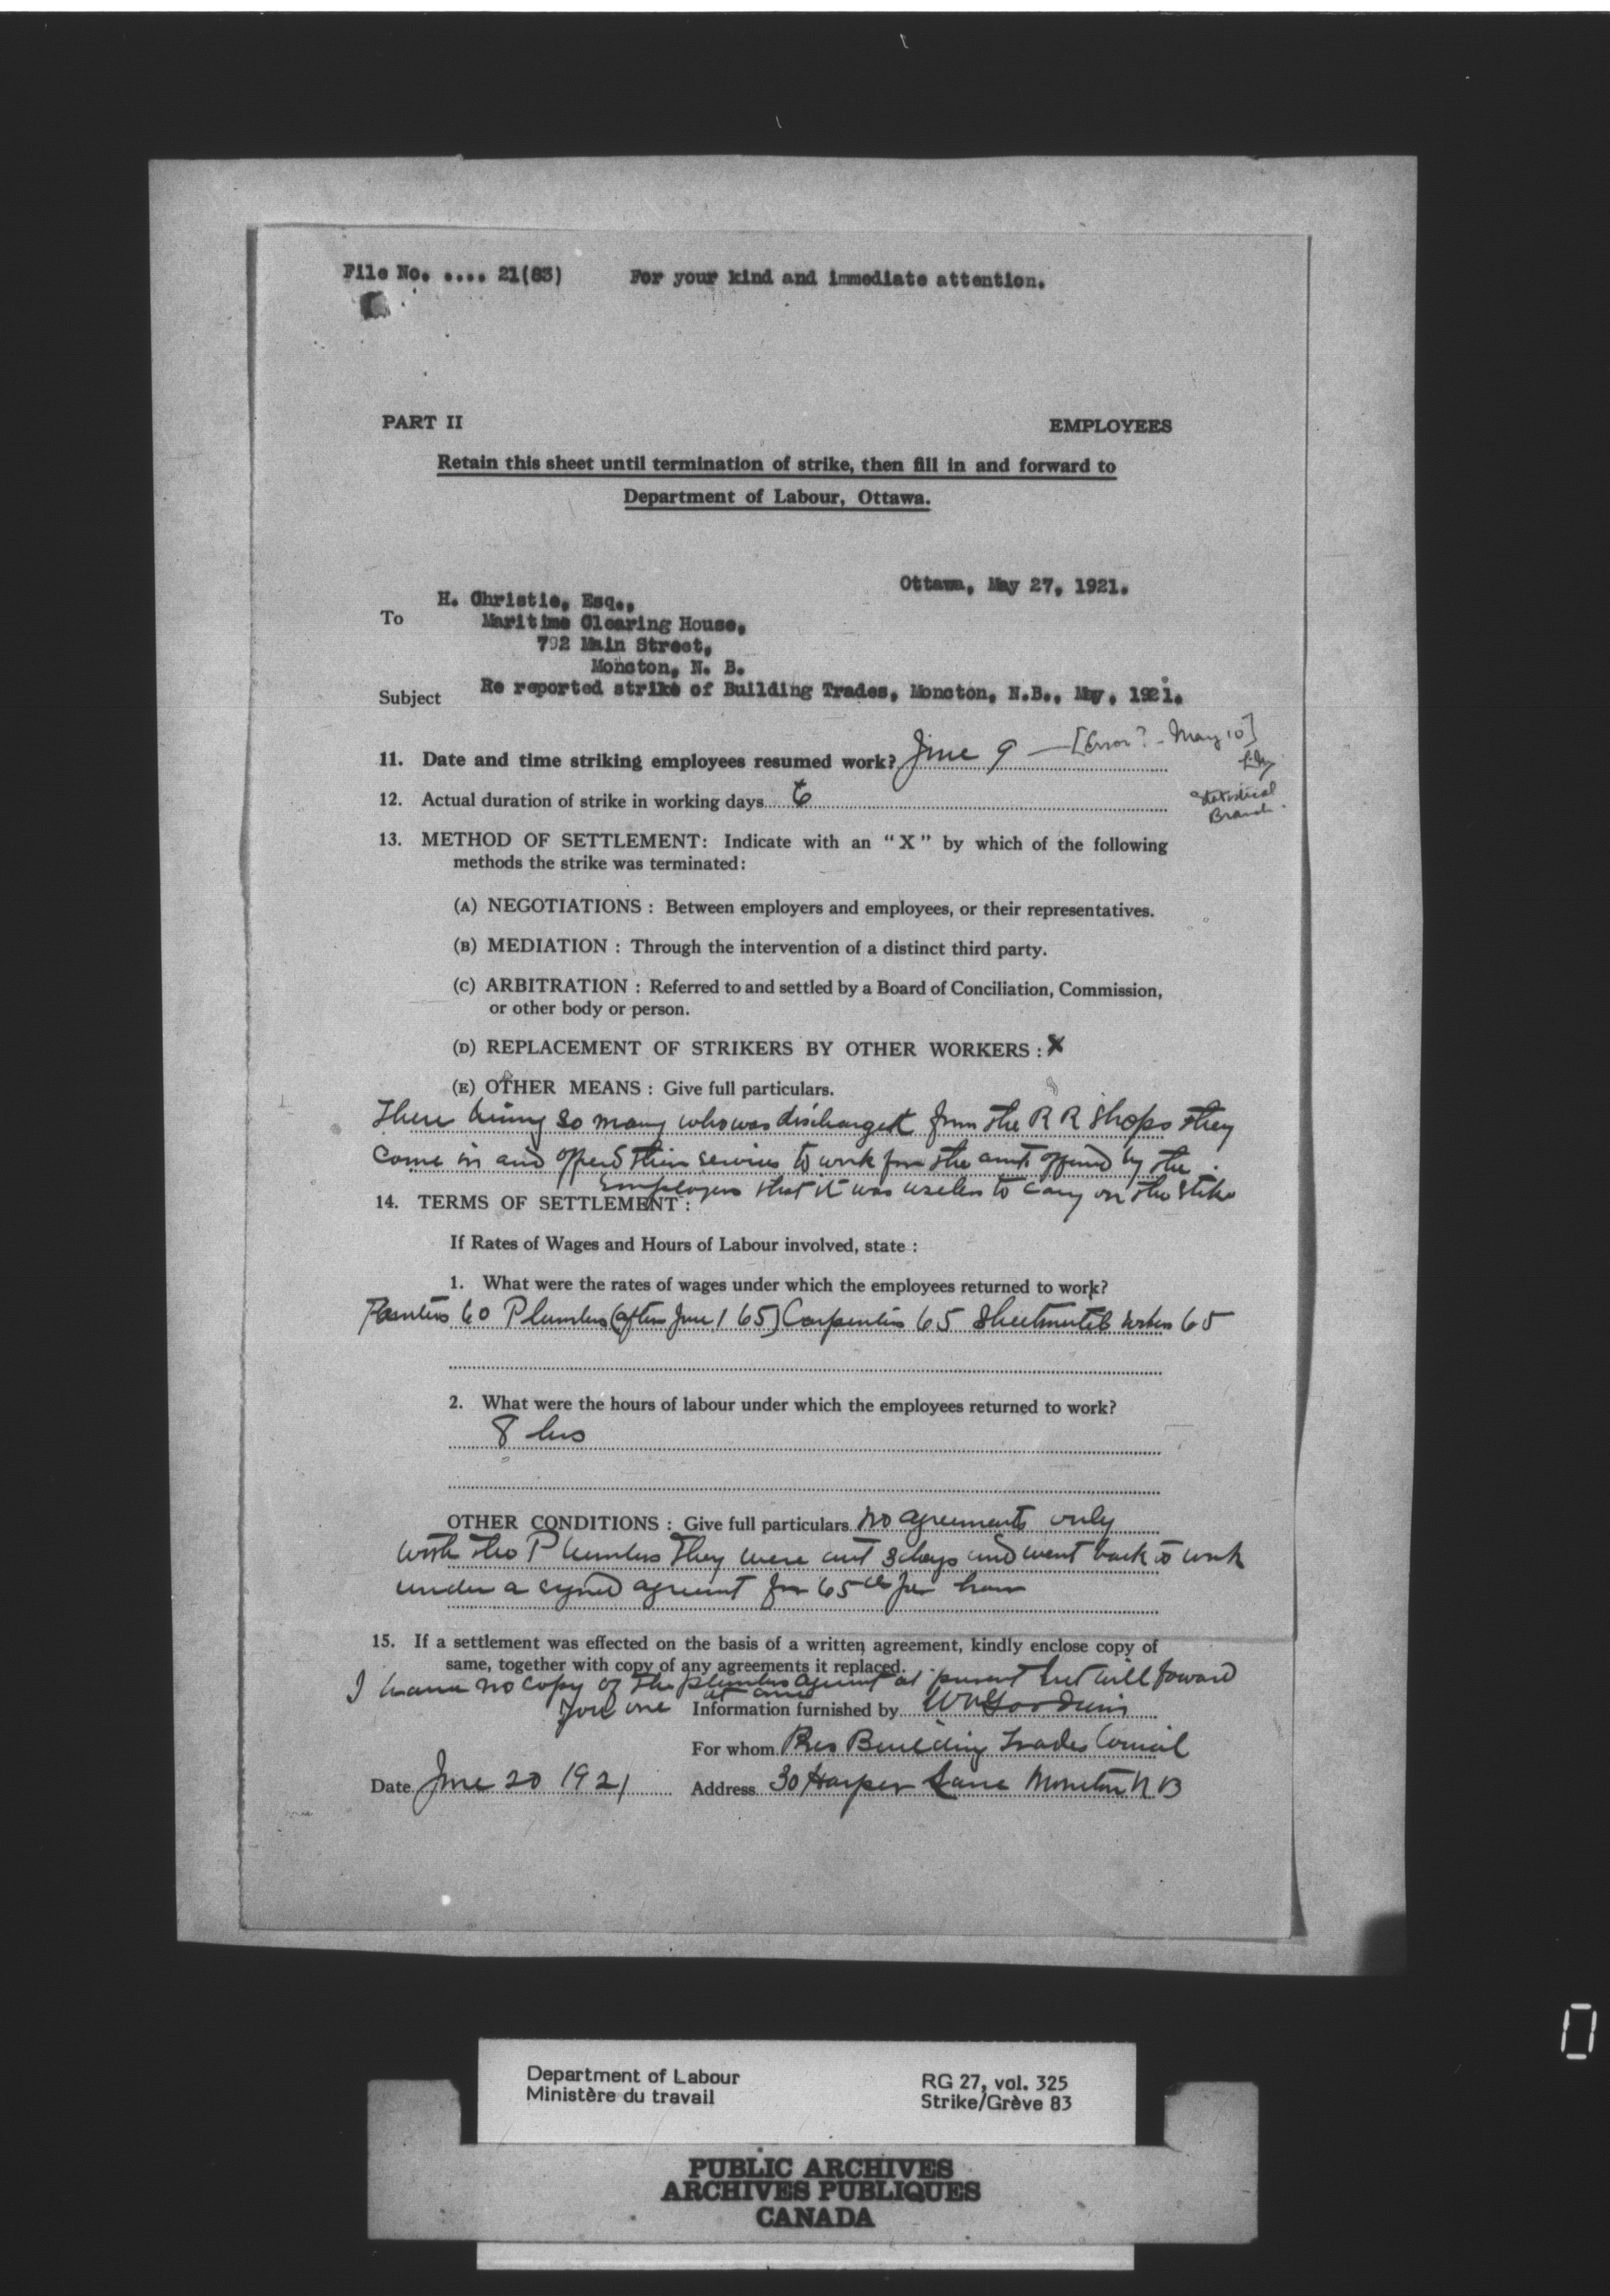 File No. .... 21(83) For your kind and immediate attention.
PART II EMPLOYEES
Retain this sheet until termination of strike, then fill in and forward to
Department of Labour, Ottawa.
Ottawa, May 27, 1921.
H. Christie, Esq.,
To Maritime Clearing House,
792 Main Street,
Moncton, N. B.
Subject Re reported strike of Building Trades, Moncton, N.B., May, 1921.
11. Date and time striking employees resumed work? June 9 — [Error? - May 10]
12. Actual duration of strike in working days 6
Statistical
Branch.
13. METHOD OF SETTLEMENT: Indicate with an "X" by which of the following
methods the strike was terminated:
(A) NEGOTIATIONS : Between employers and employees, or their representatives.
(B) MEDIATION : Through the intervention of a distinct third party.
(C) ARBITRATION : Referred to and settled by a Board of Conciliation, Commission,
or other body or person.
(D) REPLACEMENT OF STRIKERS BY OTHER WORKERS : X
(E) OTHER MEANS : Give full particulars.
There being so many who was discharged from the R R Shops they
come in and offerd their services to work for the amt offerd by the
employers that it was useless to cary on the strike
14. TERMS OF SETTLEMENT :
If Rates of Wages and Hours of Labour involved, state :
1. What were the rates of wages under which the employees returned to work?
Painters 60 Plumbers (after June 1 65) Carpenters 65 Sheetmetal 65
2. What were the hours of labour under which the employees returned to work?
8 hrs
OTHER CONDITIONS : Give full particulars no agreements only
with the Plumbers They were out 3 days and went back to work
under a signed agreement for 65 cts per hour
15. If a settlement was effected on the basis of a written agreement, kindly enclose copy of
same, together with copy of any agreements it replaced.
I have no copy of the plumbers at present but will foward
you one at once
Information furnished by
For whom Pres Building Trades Council
Date June 20 1921 Address 30 Harper Lane Moncton N B
Department of Labour
Ministère du travail
RG 27, vol. 325
Strike/Grève 83
PUBLIC ARCHIVES
ARCHIVES PUBLIQUES
CANADA
0